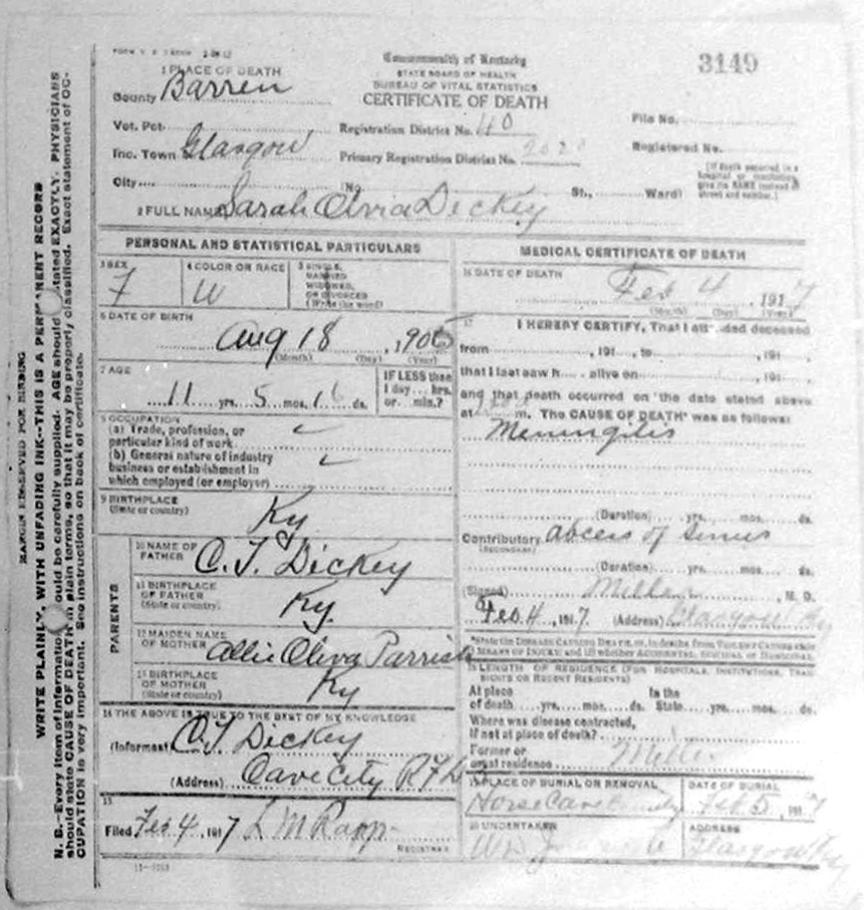 Commonwealth of Kentucky
STATE BOARD OF HEALTH
BUREAU OF VITAL STATISTICS
CERTIFICATE OF DEATH
3149
1 PLACE OF DEATH
County Barren
Vot. Pct.
Registration District No. 40
File No.
Inc. Town Glasgow
Primary Registration District No.
Registered No.
City
(No.
St., Ward)
2 FULL NAME Sarah Olivia Dickey
PERSONAL AND STATISTICAL PARTICULARS
3 SEX
F
4 COLOR OR RACE
W
5 SINGLE, MARRIED WIDOWED, OR DIVORCED (Write the word)
6 DATE OF BIRTH
Aug 18, 1905
(Month) (Day) (Year)
7 AGE
11 yrs. 5 mos. 16 ds.
IF LESS than
1 day... hrs.
or... min.?
8 OCCUPATION
(a) Trade, profession, or
particular kind of work
(b) General nature of industry
business or establishment in
which employed (or employer)
9 BIRTHPLACE
(State or country)
Ky
PARENTS
10 NAME OF FATHER
C. T. Dickey
11 BIRTHPLACE OF FATHER
(State or country)
Ky.
12 MAIDEN NAME OF MOTHER
Allie Oliva Parrish
13 BIRTHPLACE OF MOTHER
(State or country)
Ky
14 THE ABOVE IS TRUE TO THE BEST OF MY KNOWLEDGE
(Informant) C. T. Dickey
(Address) Cave City R F D
15
Filed Feb 4, 1917 L M Rapp
REGISTRAR
MEDICAL CERTIFICATE OF DEATH
16 DATE OF DEATH
Feb 4 1917
(Month) (Day) (Year)
17 I HEREBY CERTIFY, That I attended deceased
from ..., 191.., to ..., 191..,
that I last saw h... alive on ..., 191..,
and that death occurred on the date stated above
at m. The CAUSE OF DEATH* was as follows:
Meningitis
(Duration) yrs. mos. ds.
Contributory abcess of sinus
(SECONDARY)
(Duration) yrs. mos. ds.
(Signed) Miller, M. D.
Feb 4, 1917 (Address) Glasgow Ky
*State the DISEASE CAUSING DEATH, or, in deaths from VIOLENT CAUSES state
MEANS OF INJURY; and (2) whether ACCIDENTAL, SUICIDAL or HOMICIDAL.
18 LENGTH OF RESIDENCE (FOR HOSPITALS, INSTITUTIONS, TRANSIENTS OR RECENT RESIDENTS)
At place
of death... yrs... mos... ds.
In the
State... yrs... mos... ds.
Where was disease contracted,
if not at place of death?
Former or
usual residence Miller
19 PLACE OF BURIAL OR REMOVAL
Horse Cave
DATE OF BURIAL
Feb 5, 1917
20 UNDERTAKER
ADDRESS
Glasgow Ky
MARGIN RESERVED FOR BINDING
WRITE PLAINLY, WITH UNFADING INK--THIS IS A PERMANENT RECORD
N. B.--Every item of information should be carefully supplied. AGE should be stated EXACTLY. PHYSICIANS
should state CAUSE OF DEATH in plain terms, so that it may be properly classified. Exact statement of OC-
CUPATION is very important. See instructions on back of certificate.